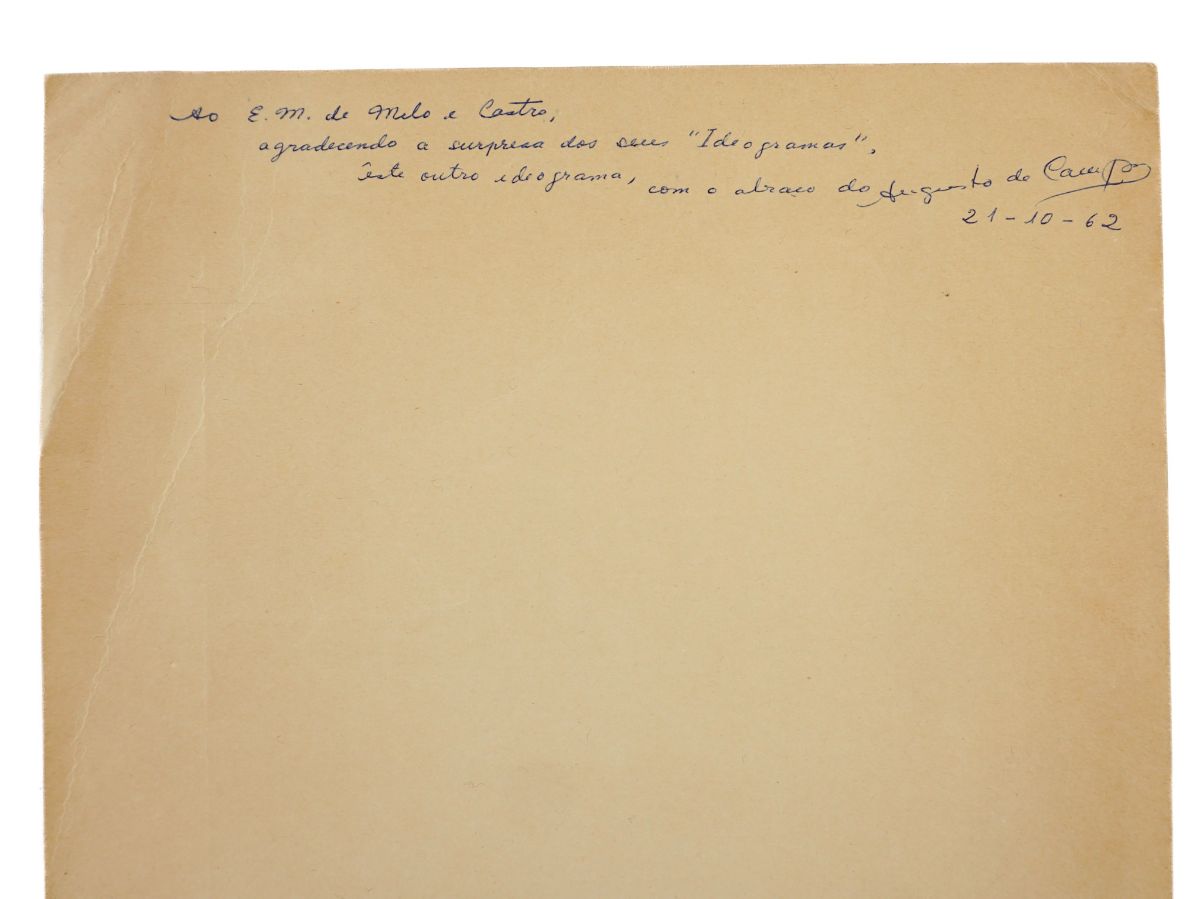 Ao E. M. de Melo e Castro,
agradecendo a surpresa dos seus "Ideogramas",
êste outro ideograma, com o abraço do Augusto de Campos
21-10-62